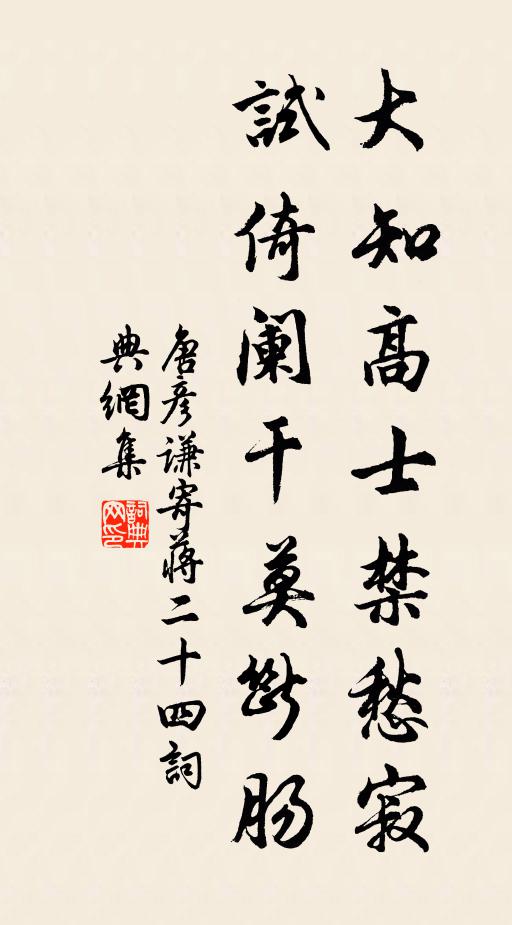 大知高士禁愁寂
試倚闌干莫斷腸
唐彥謙寄蔣二十四詞
典網集
詞典
网印